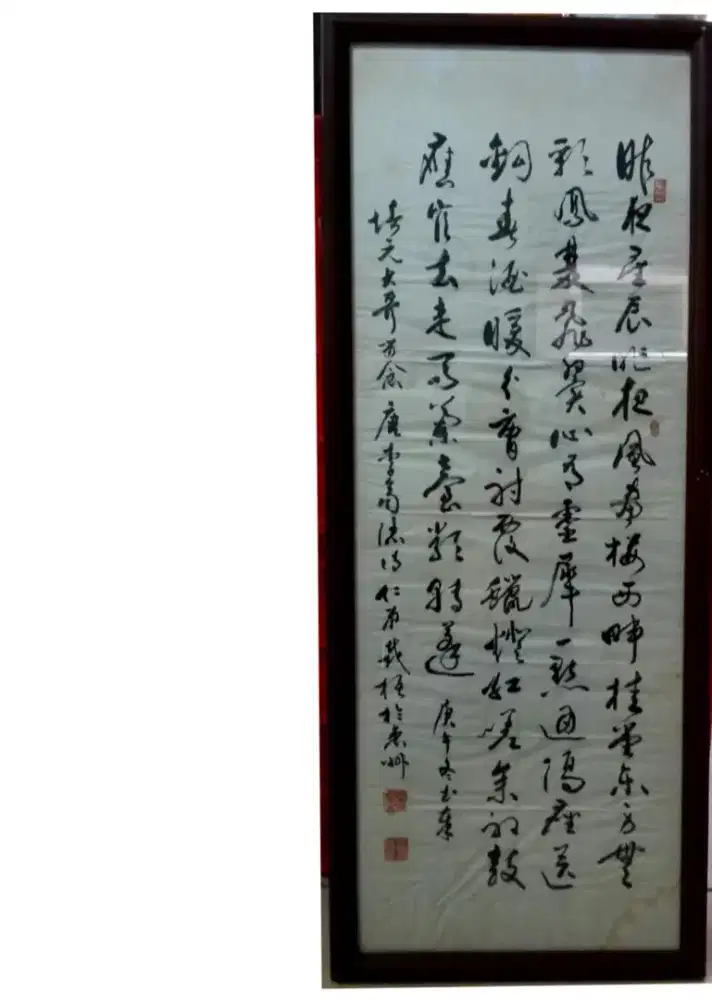 昨夜星辰昨夜風畫樓西畔桂堂東身無
彩鳳雙飛翼心有靈犀一點通隔座送
鉤春酒暖分曹射覆蠟燈紅嗟余聽鼓
應官去走馬蘭臺類轉蓬 庚午冬書奉
培元大哥 唐李商隱詩 於惠州